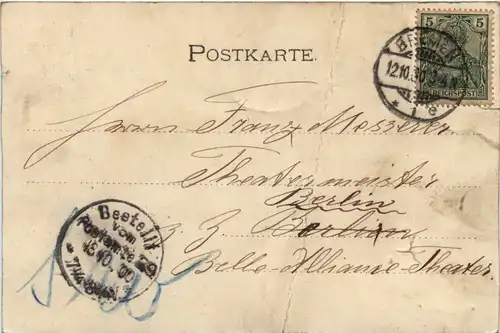 POSTKARTE.
5
REICHSPOST
BREMEN
12.10.00
1 e
Herrn Franz Messerer
Theatermeister
Berlin
z. Z. Berlin
Belle-Alliance-Theater.
Bestellt
vom
Postamte
13.10.00